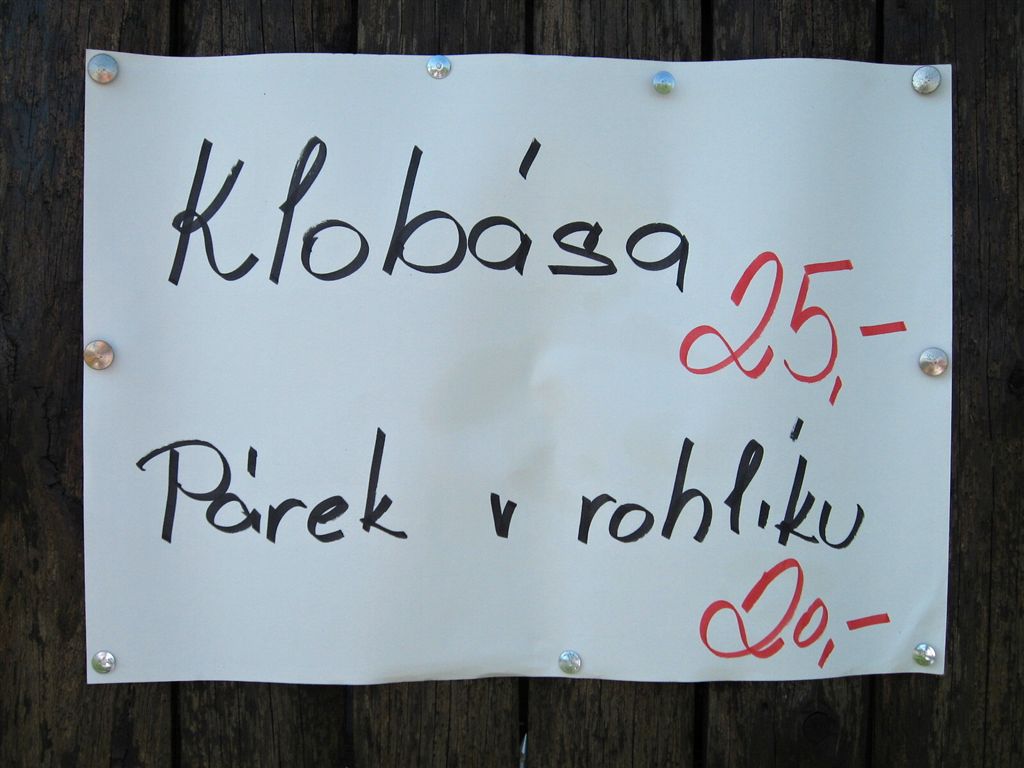 Klobása
25,-
Párek v rohlíku
20,-